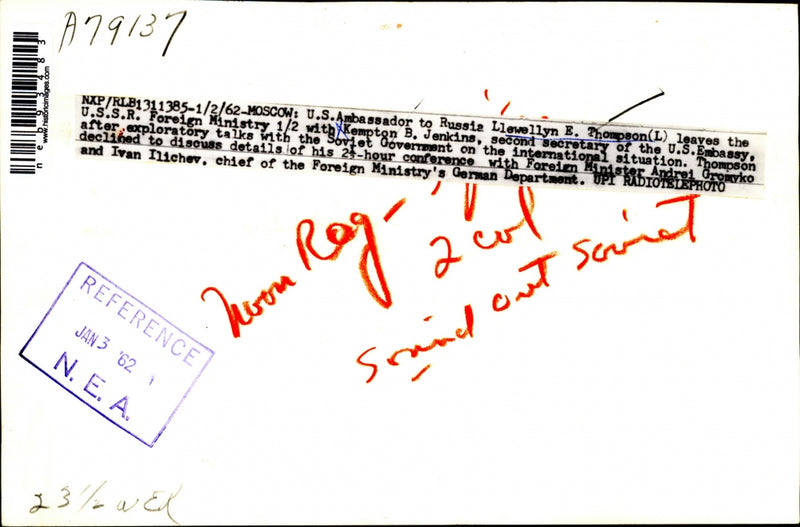 A79137
neb93483
www.historicimages.com
NXP/RLB1311385-1/2/62-MOSCOW: U.S.Ambassador to Russia Llewellyn E. Thompson(L) leaves the
U.S.S.R. Foreign Ministry 1/2 with Kempton B. Jenkins, second secretary of the U.S.Embassy,
after exploratory talks with the Soviet Government on the international situation. Thompson
declined to discuss details of his 2½-hour conference with Foreign Minister Andrei Gromyko
and Ivan Ilichev, chief of the Foreign Ministry's German Department. UPI RADIOTELEPHOTO
2 col
sound out soviet
REFERENCE
JAN 3 '62
N. E. A.
23½